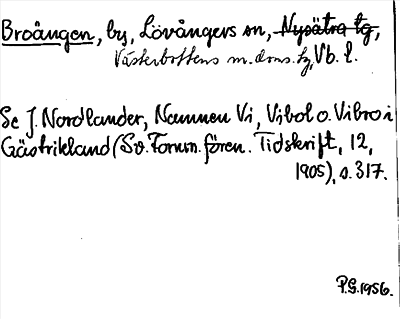 Broången, by, Lövångers sn, Nysätra tg,
Västerbottens m. doms. tg, Vb. l.
Se J. Nordlander, Namnen Vi, Vibol o. Vibro i
Gästrikland (Sv. Fornm. fören. Tidskrift, 12,
1905), s. 317.
P.G. 1956.